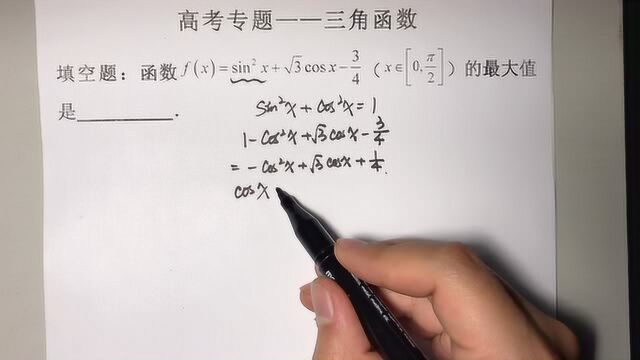 高考专题——三角函数
填空题：函数f(x)=sin²x+√3cosx-3/4（x∈[0,π/2]）的最大值
是________.
sin²x+cos²x=1
1-cos²x+√3cosx-3/4
=-cos²x+√3cosx+1/4.
cosx